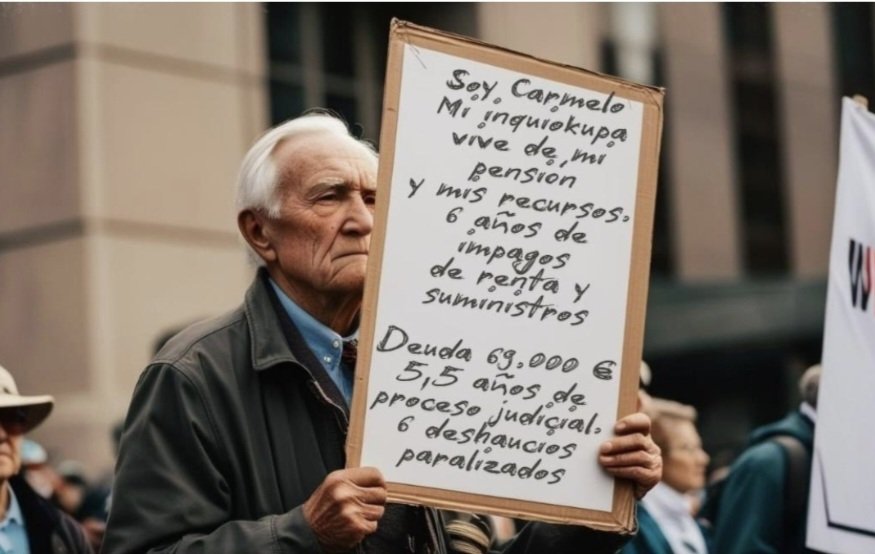 Soy Carmelo
Mi inquiokupa
vive de mi
pensión
y mis recursos.
6 años de
impagos
de renta y
suministros
Deuda 69.000 €
5,5 años de
proceso judicial.
6 deshaucios
paralizados
W